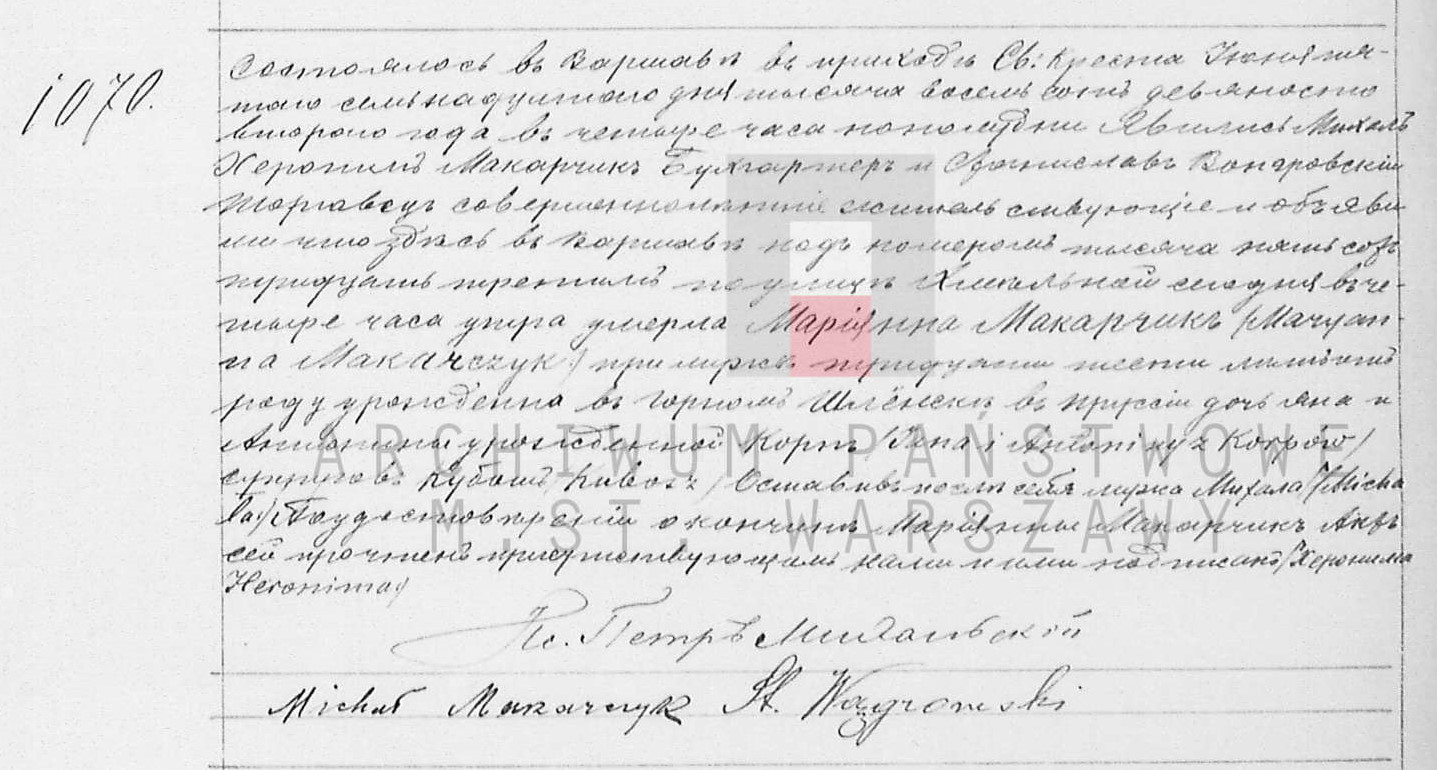 1070.
Состоялось въ Варшавѣ въ приходѣ Св: Креста Іюня пя-
таго семьнадцатаго дня тысяча восемь сотъ девяносто
втораго года въ четыре часа пополудни Явились Михалъ
Херонимъ Макарчикъ Бухгалтеръ и Станиславъ Вонгровскій
торговецъ совершеннолѣтніе жительствующіе и объяви
ли что здѣсь въ Варшавѣ подъ номеромъ тысяча пять сотъ
тридцать третимъ по улицѣ Хмѣльной сегодня въ че-
тыре часа утра умерла Маріянна Макарчикъ /Maryan-
na Makarczyk/ при мужѣ тридцати шести лѣтъ отъ
роду урожденна въ Горномъ Шлёнскѣ въ Пруссіи дочь Яна и
Антонины урожденной Корпъ /Jana i Antoniny z Korpów/
супруговъ Кубошъ Оставивъ послѣ себя мужа Михала /Micha
ła:/ По удостовѣреніи о кончинѣ Маріянны Макарчикъ Актъ
сей прочтенъ присутствующимъ нами и ими подписанъ /Херонима
Heronima:/
Кс. Петръ
Michał Makarczyk St. Wągrowski
ARCHIWUM PAŃSTWOWE
M.ST. WARSZAWY